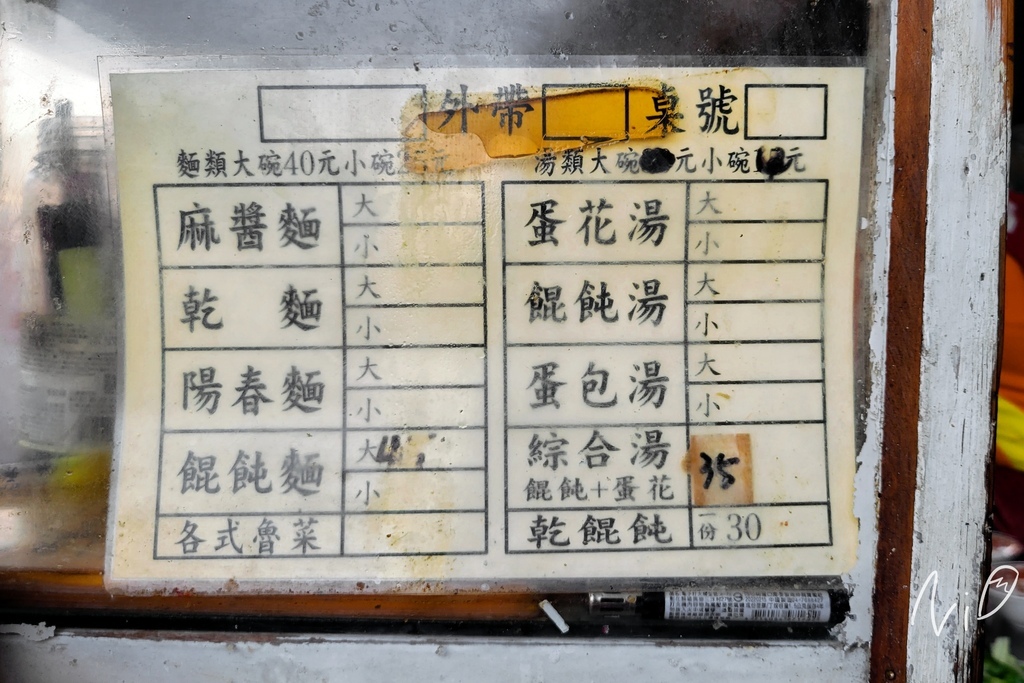 外帶 桌號
麵類大碗40元小碗 元
湯類大碗 元小碗 元
麻醬麵 大
小
乾麵 大
小
陽春麵 大
小
餛飩麵 大
小
各式魯菜
蛋花湯 大
小
餛飩湯 大
小
蛋包湯 大
小
綜合湯 35
餛飩+蛋花
乾餛飩 一份30